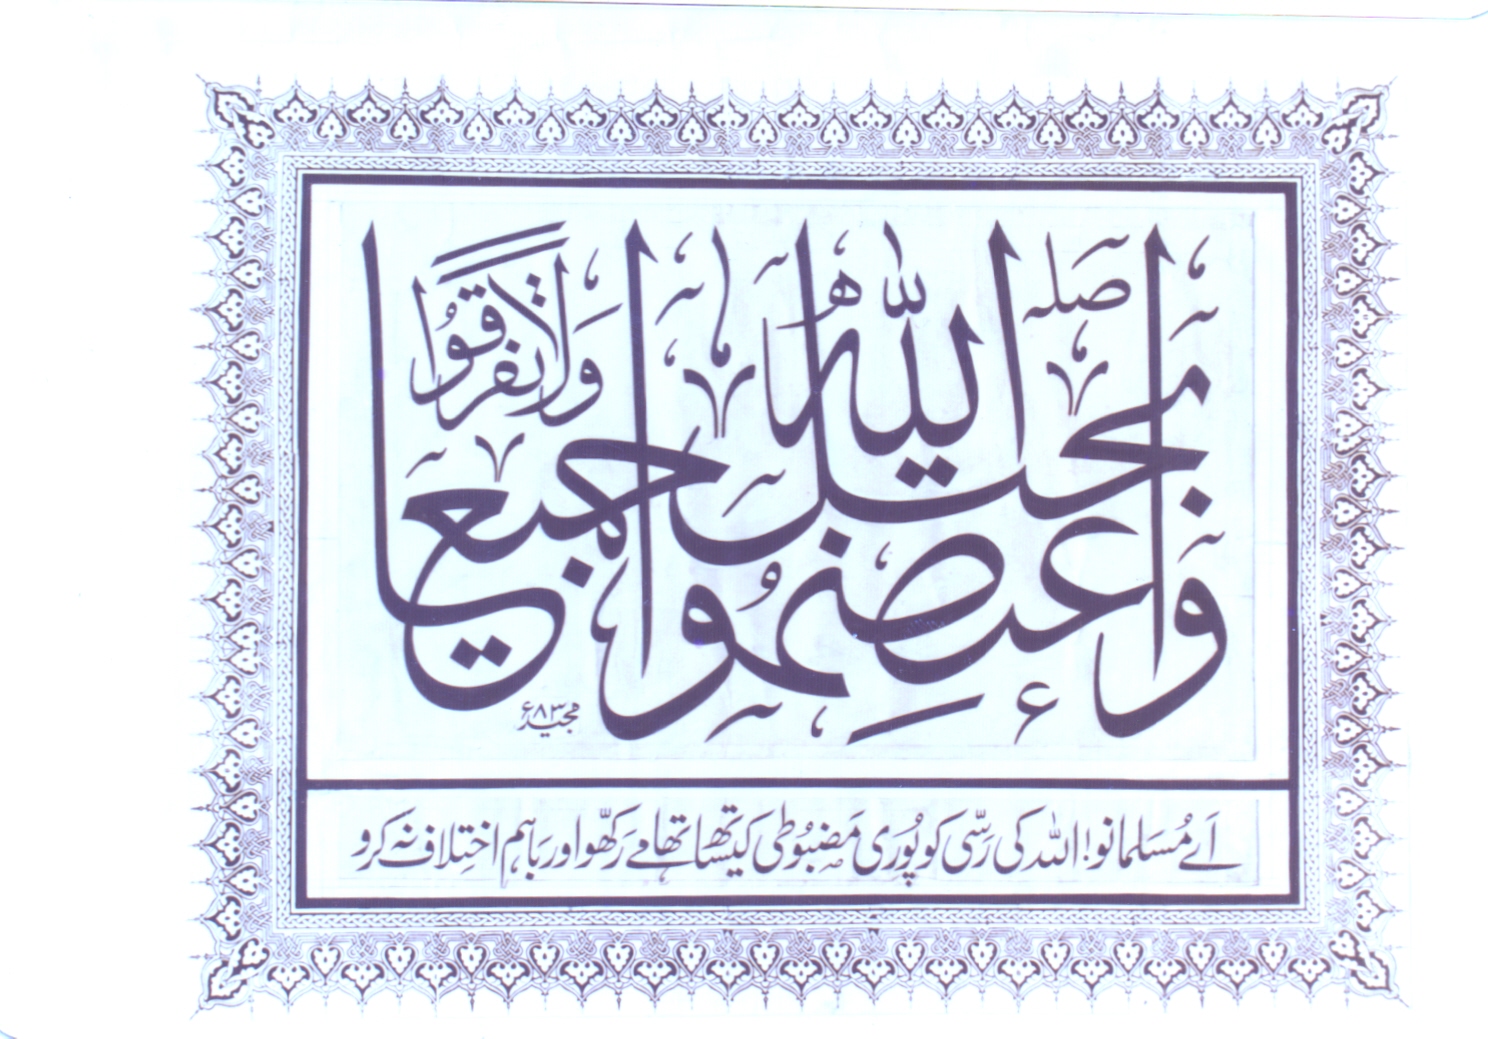 وَاعْتَصِمُوا بِحَبْلِ اللّٰهِ جَمِيعًا وَلَا تَفَرَّقُوا
مجید ۸۳ء
اَے مُسَلمانو! اللہ کی رَسّی کو پُورَی مَضبُوطی کیساتھ تھامے رَکھّو اور بَاہم اختِلاف نہ کرو